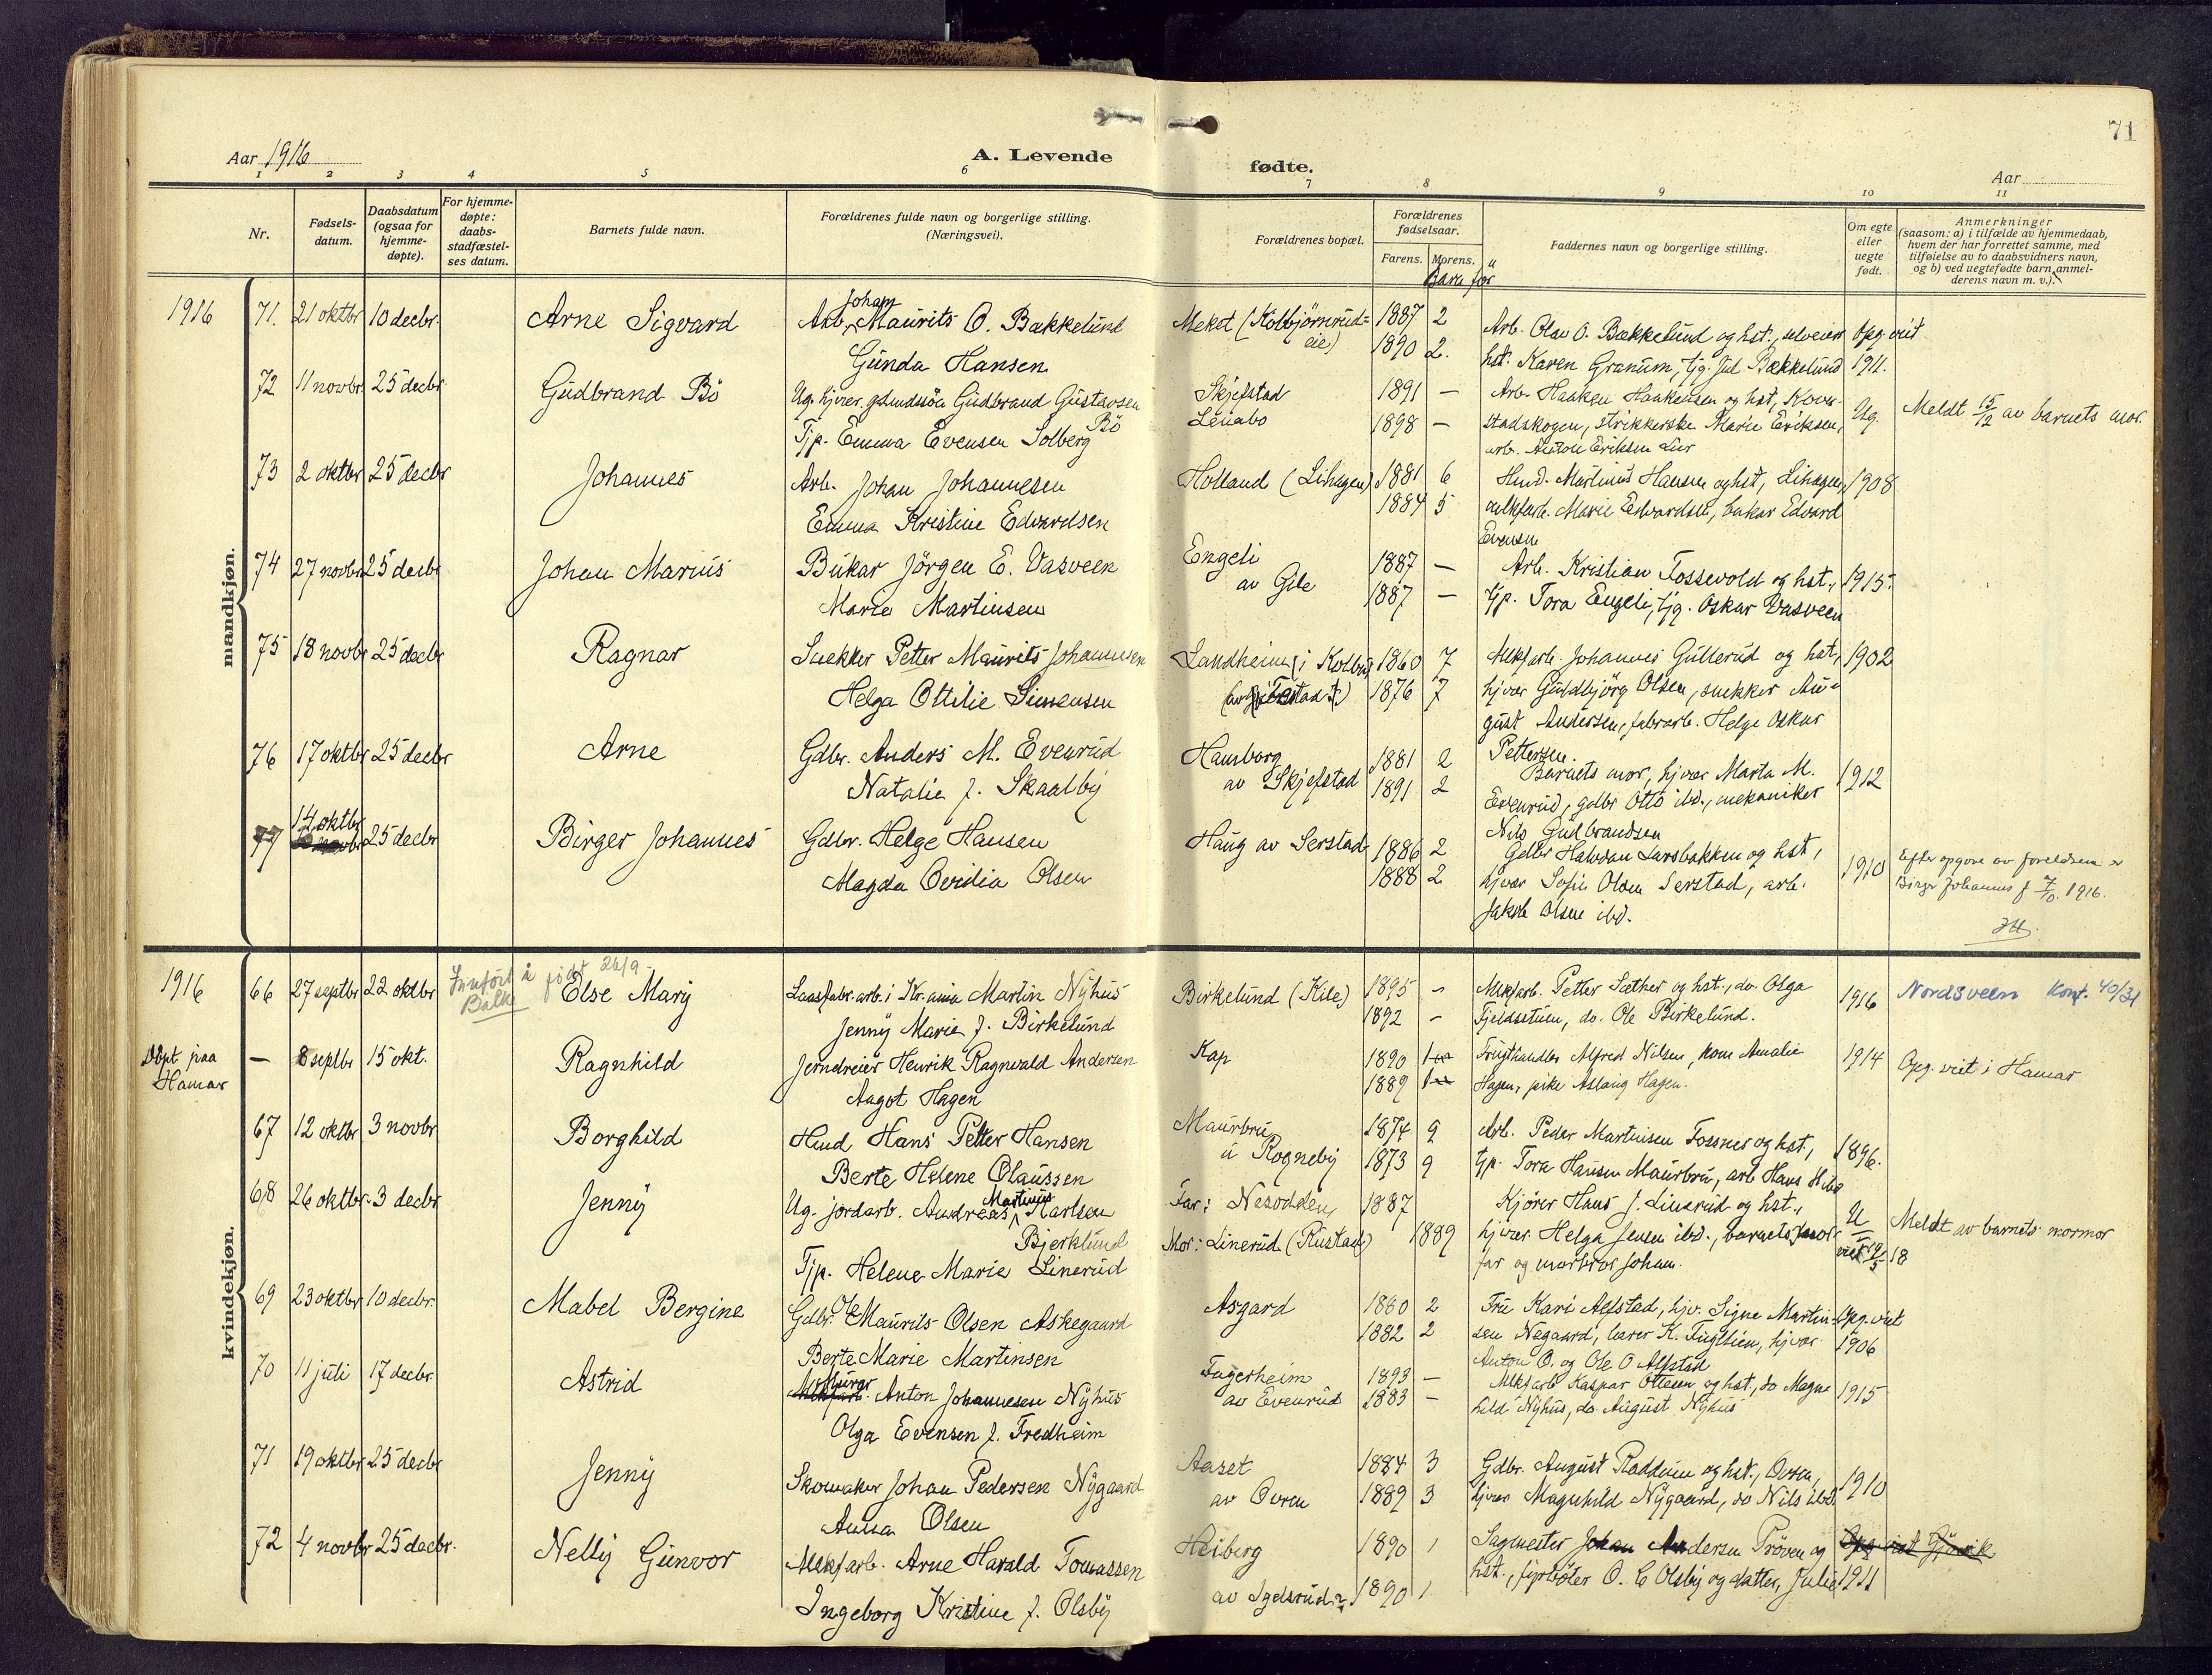 71
Aar 1916
A. Levende
fødte.
Aar
1 2 3 4 5 6 7 8 9 10 11
Nr.
Fødsels-
datum.
Daabsdatum
(ogsaa for
hjemme-
døpte).
For hjemme-
døpte:
daabs-
stadfæstel-
ses datum.
Barnets fulde navn.
Forældrenes fulde navn og borgerlige stilling.
(Næringsvei).
Forældrenes bopæl.
Forældrenes
fødselsaar.
Farens. Morens.
Barn før
Faddernes navn og borgerlige stilling.
Om egte
eller
uegte
født.
Anmerkninger
(saasom: a) i tilfælde av hjemmedaab,
hvem der har forrettet samme, med
tilføielse av to daabsvidners navn,
og b) ved uegtefødte barn anmel-
derens navn m. v.).
mandkjøn.
1916 71. 21 oktbr 10 decbr. Arne Sigvard Arb. Johan Maurits O. Bækkelund Meket (Kolbjørnrud= 1887 2 Arb. Olav O. Bækkelund og hst., selveier Opg. viet
Gunda Hansen eie) 1890 2. hst. Karen Granum, tjg. Jul Bækkelund 1911.
72 11 novbr 25 decbr. Gudbrand Bö Ug. hjver. gdmdssön Gudbrand Gustavsen Bö Skjefstad 1891 — Arb. Haaken Haakensen og hst, Kover-
Tjp. Emma Evensen Solberg Lenabo 1898 — stadskogen, strikkerske Marie Eriksen, Ug. Meldt 15/12 av barnets mor.
arb. Anton Eriksen Lur
73 2 oktbr 25 decbr Johannes Arb. Johan Johannesen Holland (Lihagen) 1881 6 Husd. Martinus Hansen og hst, Lihagen, 1908
Emma Kristine Edvardsen 1884 5 mlkfarb. Marie Edvardsen, bukar Edvard
Evensen
74 27 novbr 25 decbr Johan Marius Bukar Jörgen E. Vasveen Engeli 1887 — Arb. Kristian Fossvold og hst., 1915.
Marie Martinsen av Gile 1887 — tjp. Tora Engeli, tjg. Oskar Vasveen
75 18 novbr 25 decbr Ragnar Snekker Petter Maurits Johannesen Landheim (i Kolbu 1860 7 Mlkfarb. Johannes Gullerud og hst, 1902
Helga Ottilie Simensen 1876 7 hjver Guldbjörg Olsen, snekker Au-
gust Andersen, fabrarb. Helge Oskar
Pettersen.
76 17 oktbr 25 decbr Arne Gdbr. Anders M. Evenrud Hamborg 1881 2 Barnets mor, hjver Marta M.
Natalie f. Skaalby av Skjefstad 1891 2 Evenrud, gdbr Otto ibd., mekaniker 1912
Nils Gudbrandsen
77 14 oktbr 25 decbr Birger Johannes Gdbr. Helge Hansen Haug av Serstad 1886 2 Gdbr Halvdan Larsbakken og hst,
Magda Ovidia Olsen 1888 2 hjver Sofie Olsen Serstad, arb. 1910 Efter opgave av foreldrene er
Birger Johannes f 7/10. 1916.
Jakob Olsen ibd.
kvindekjøn.
1916 66 27 septbr 22 oktbr Innført i Balke født 26/9 Else Mary Laasfabr. arb. i Kr.ania Martin Nyhus Birkelund (Kile) 1895 - Mlkfarb. Petter Sæther og hst., do. Olga 1916 Nordsveen Konf. 40/31
Jenny Marie f. Birkelund 1892 - Fjeldsstuen, do. Ole Birkelund.
Døpt paa
Hamar — 8 septbr 15 okt. Ragnhild Jerndreier Henrik Ragnvald Andersen Kap 1890 1 Frugthandler Alfred Nilsen, kone Amalie 1914 Opg. viet i Hamar
Augot Hagen 1889 1 Hagen, pike Aslaug Hagen.
67 12 oktbr 3 novbr Borghild Husd Hans Petter Hansen Maurbru 1874 9 Arb. Peder Martinsen Fossnes og hst., 1896.
Berte Helene Olaussen u Rogneby 1873 9 tjp. Tora Hansen Maurbru, arb Hans H ibd
68 26 oktbr. 3 decbr Jenny Ug. jordarb. Andreas Martinus Karlsen Far: Nesodden, 1887 Kjörer Hans J. Linerud og hst., U
Bjerklund Mor: Linerud (Rustad) 1889 hjver Helga Jensen ibd., barnets mor- viet 19/5 18 Meldt av barnets mormor
Tjp. Helene Marie Linerud far og morbror Johan.
69 23 oktbr 10 decbr. Mabel Bergine Gdbr. Ole Maurits Olsen Askegaard Asgard 1880 2 Fru Kari Alfstad, hjv. Signe Martin- Opg. viet
Berte Marie Martinsen 1882 2 sen Nøgaard, lærer K. Fugllien, hjver 1906
Anton O. og Ole O Alfstad
70 11 juli 17 decbr. Astrid Murer Anton Johannesen Nyhus Fagerheim 1893 — Mlkfarb Kaspar Ottesen og hst., do Magn- 1915
Olga Evensen f. Fredheim av Evenrud 1883 — hild Nyhus, do. August Nyhus
71 19 oktbr 25 decbr Jenny Skomaker Johan Pedersen Nygaard Aaset 1884 3 Gdbr. August Raddum og hst., Ovren, 1910
Anna Olsen av Ovren 1889 3 hjver Magnhild Nygaard, do Nils ibd.
72 4 novbr 25 decbr. Nelly Gunvor Mlkfarb. Arne Harald Tomassen Heiberg 1890 1 Sagmester Johan Andersen Pröven og Opg viet Gjøvik
Ingeborg Kristine f. Olsby av Igelsrud 1890 1 hst., fyrböter O. C Olsby og datter, Julie 1911